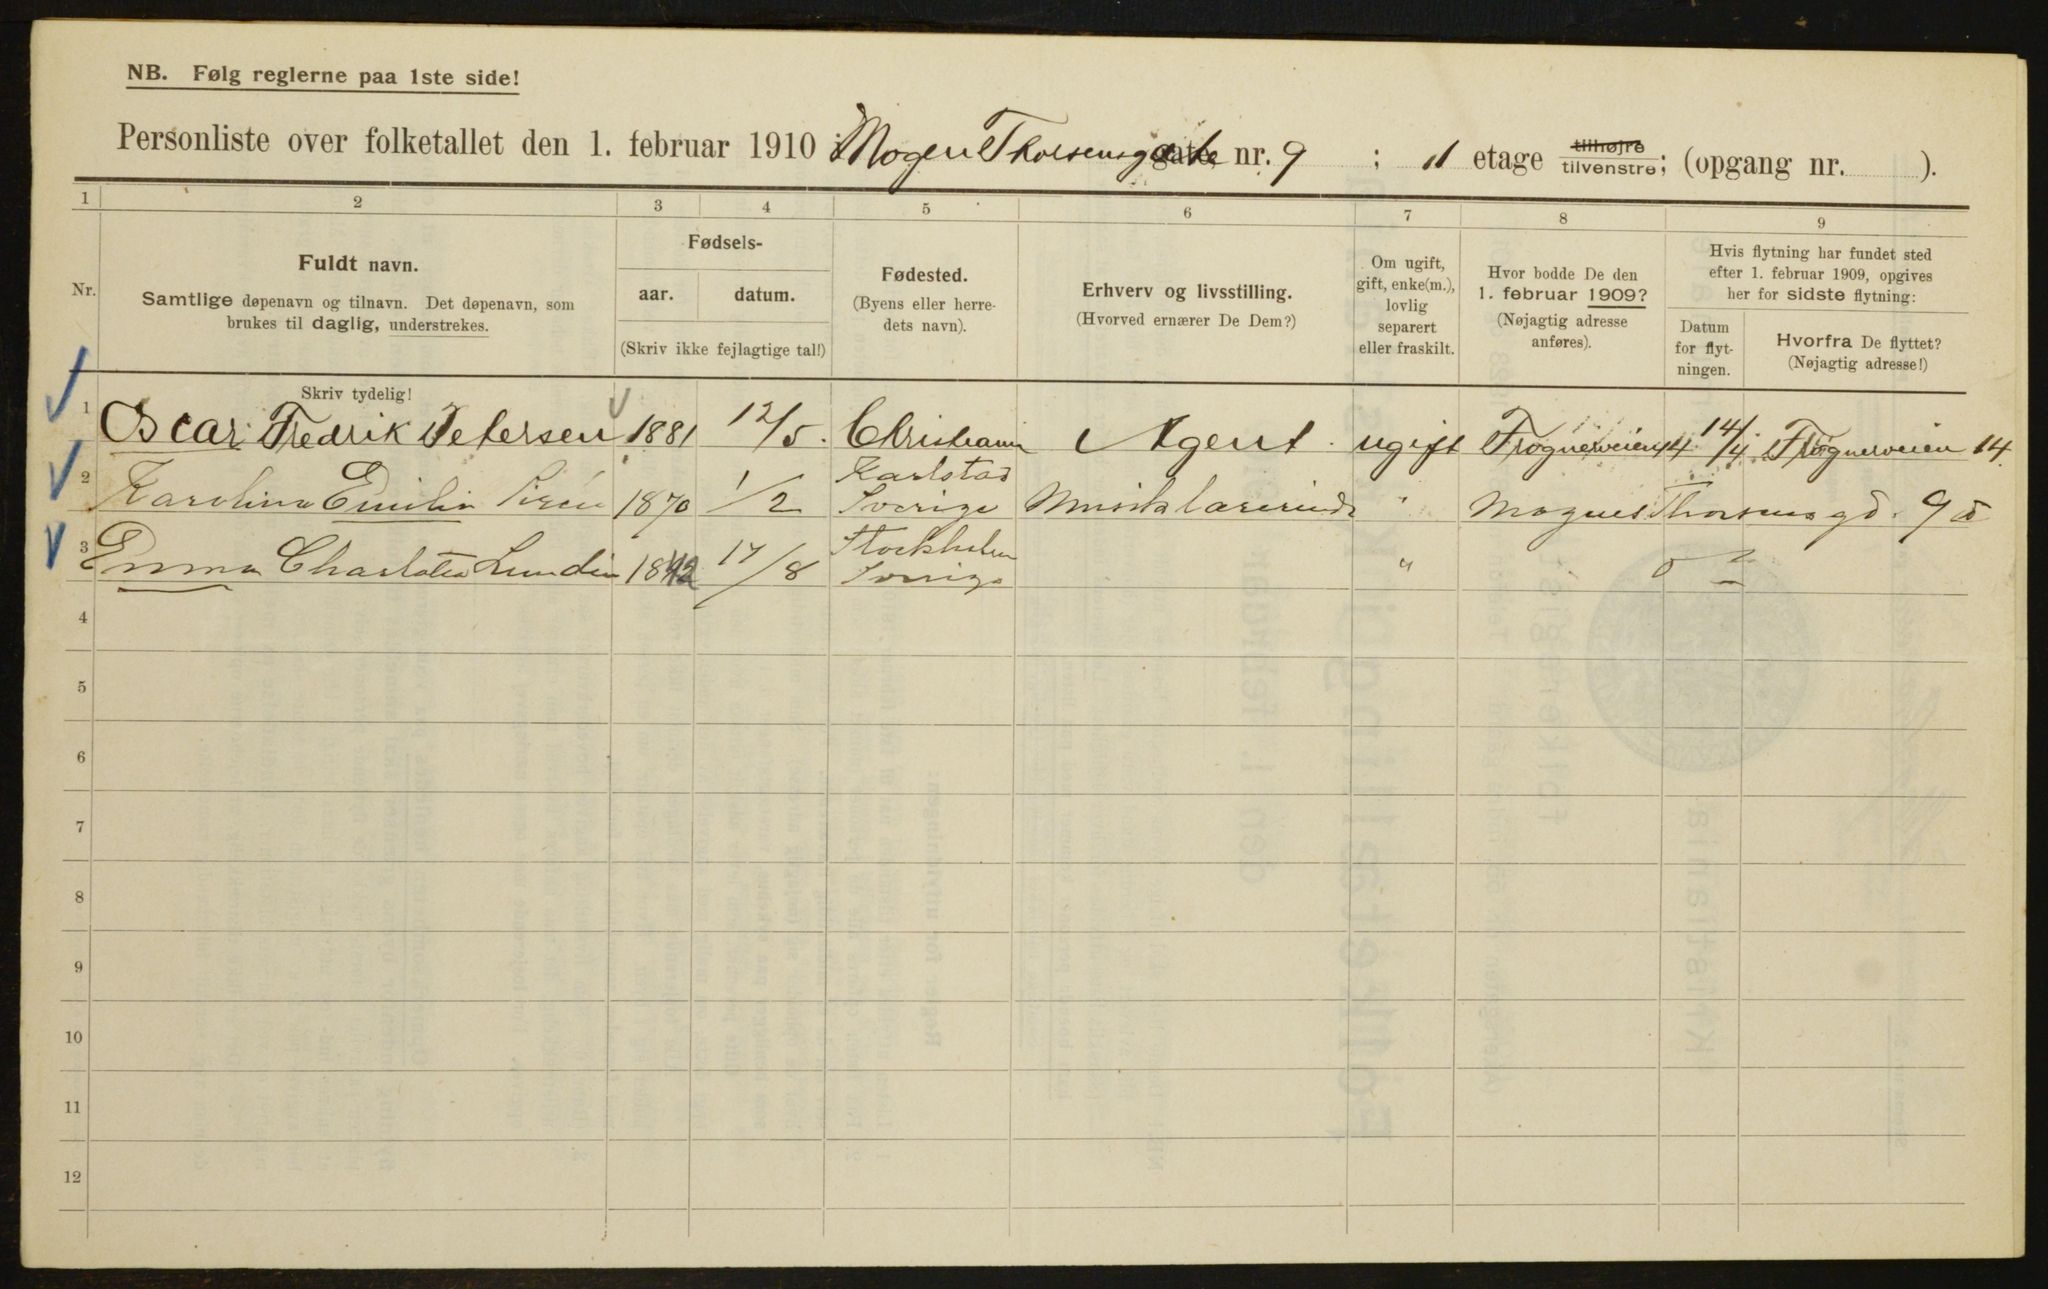 NB. Følg reglerne paa 1ste side!
Personliste over folketallet den 1. februar 1910 i Mogen Thorsensgate gate nr. 9 ; II etage tilhøjre tilvenstre; (opgang nr. ).
1 2 3 4 5 6 7 8 9
Nr.
Fuldt navn.
Samtlige døpenavn og tilnavn. Det døpenavn, som
brukes til daglig, understrekes.
Skriv tydelig!
Fødsels-
aar. datum.
(Skriv ikke fejlagtige tal!)
Fødested.
(Byens eller herre-
dets navn).
Erhverv og livsstilling.
(Hvorved ernærer De Dem?)
Om ugift,
gift, enke(m.),
lovlig
separert
eller fraskilt.
Hvor bodde De den
1. februar 1909?
(Nøjagtig adresse
anføres).
Hvis flytning har fundet sted
efter 1. februar 1909, opgives
her for sidste flytning:
Datum
for flyt-
ningen.
Hvorfra De flyttet?
(Nøjagtig adresse!)
1 Oscar Fredrik Petersen 1881 12/5. Christiania Agent. ugift Frognerveien 14 14/4 Frognerveien 14.
2 Karolina Emilia 1870 1/2 Karlstad Sverige Musiklärerinde " Magnus Thorsens gd. 9
3 Emma Charlotta Lundin 1842 17/8 Stockholm Sverige "
4
5
6
7
8
9
10
11
12